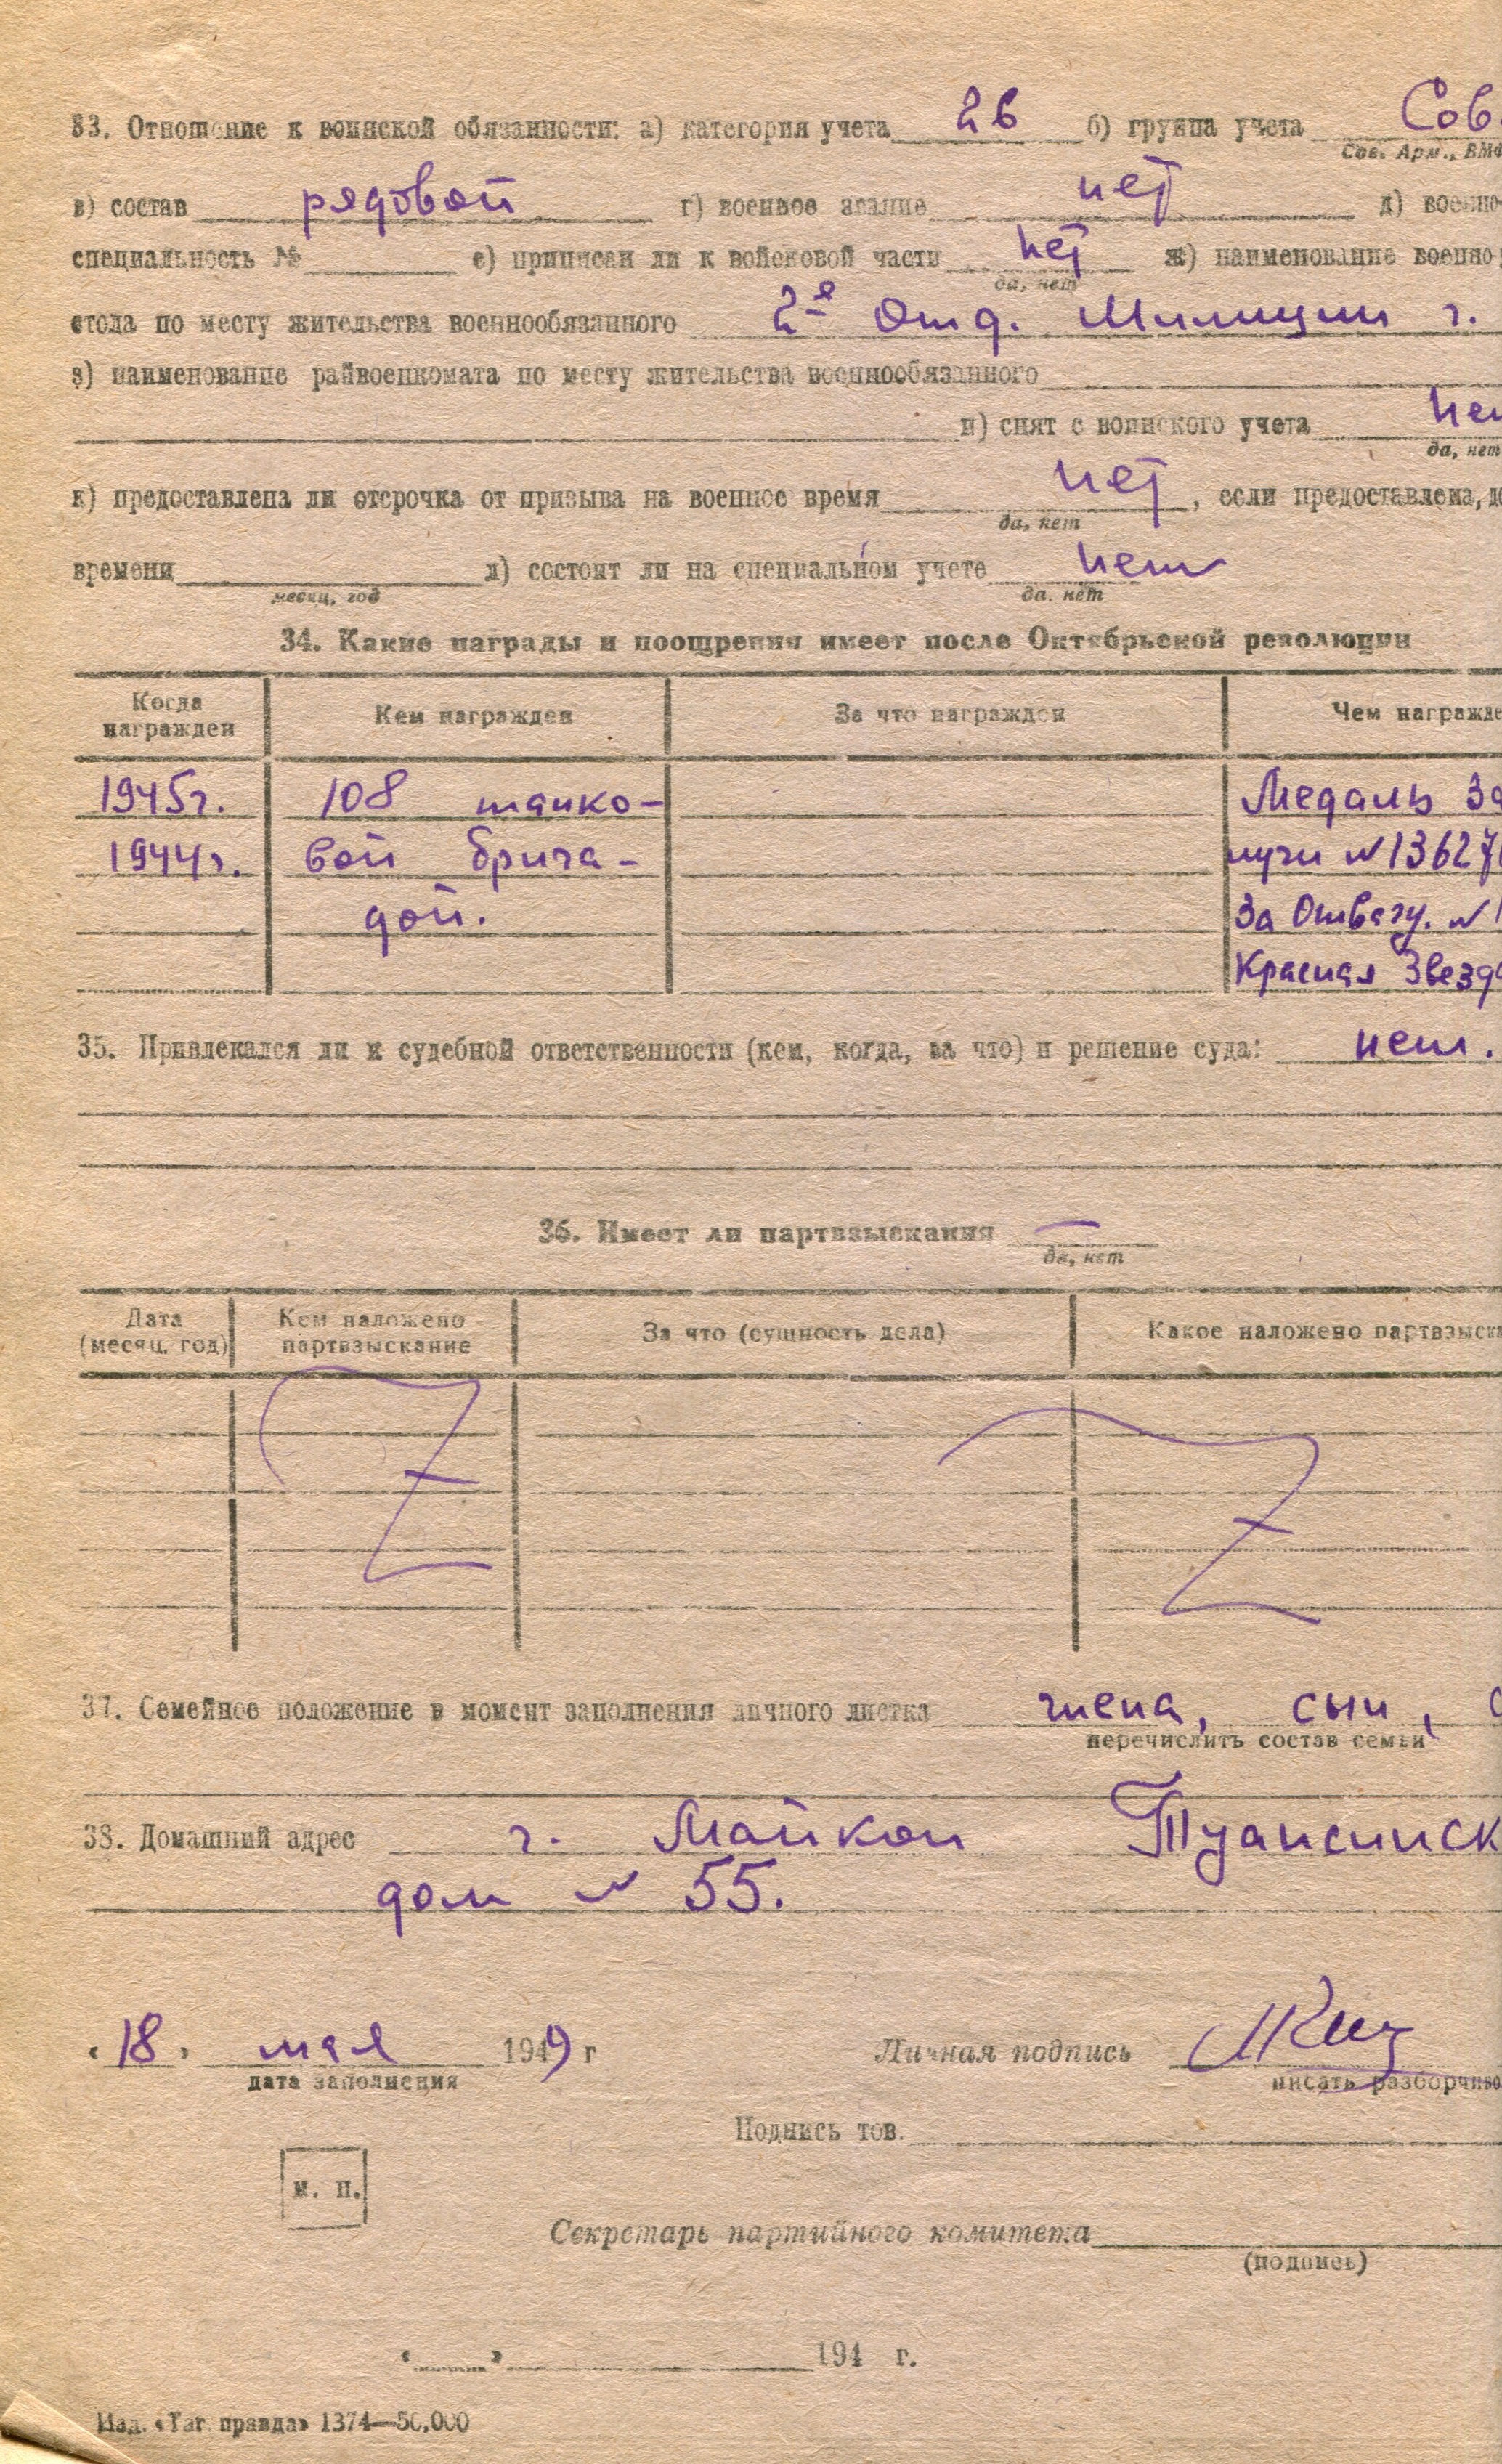 33. Отношение к воинской обязанности: а) категория учета 2в б) группа учета Сов.
Сов. Арм., ВМФ
в) состав рядовой г) военное звание нет д) военно-
специальность № е) приписан ли к войсковой части нет ж) наименование военно-
да, нет
стола по месту жительства военнообязанного 2е Отд. Милиции г.
з) наименование райвоенкомата по месту жительства военнообязанного
и) снят с воинского учета нет
да, нет
к) предоставлена ли отсрочка от призыва на военное время нет, если предоставлена, до
да, нет
времени л) состоит ли на специальном учете нет
месяц, год да. нет
34. Какие награды и поощрения имеет после Октябрьской революции
Когда награжден Кем награжден За что награжден Чем награжде
1945г. 108 танко- Медаль За
1944г. вой брига- луги №13627
дой. За Отвагу. №1
Красная Звезда
35. Привлекался ли к судебной ответственности (кем, когда, за что) и решение суда: нет.
36. Имеет ли партвзыскания —
да, нет
Дата (месяц, год) Кем наложено партвзыскание За что (сущность дела) Какое наложено партвзыска
Z Z
37. Семейное положение в момент заполнения личного листка жена, сын,
перечислить состав семьи
38. Домашний адрес г. Майкоп Туапсинск
дом № 55.
«18» мая 1949 г Личная подпись
дата заполнения писать разборчиво
Подпись тов.
м. п.
Секретарь партийного комитета
(подпись)
« » 194 г.
Изд. «Таг. правда» 1374—50.000